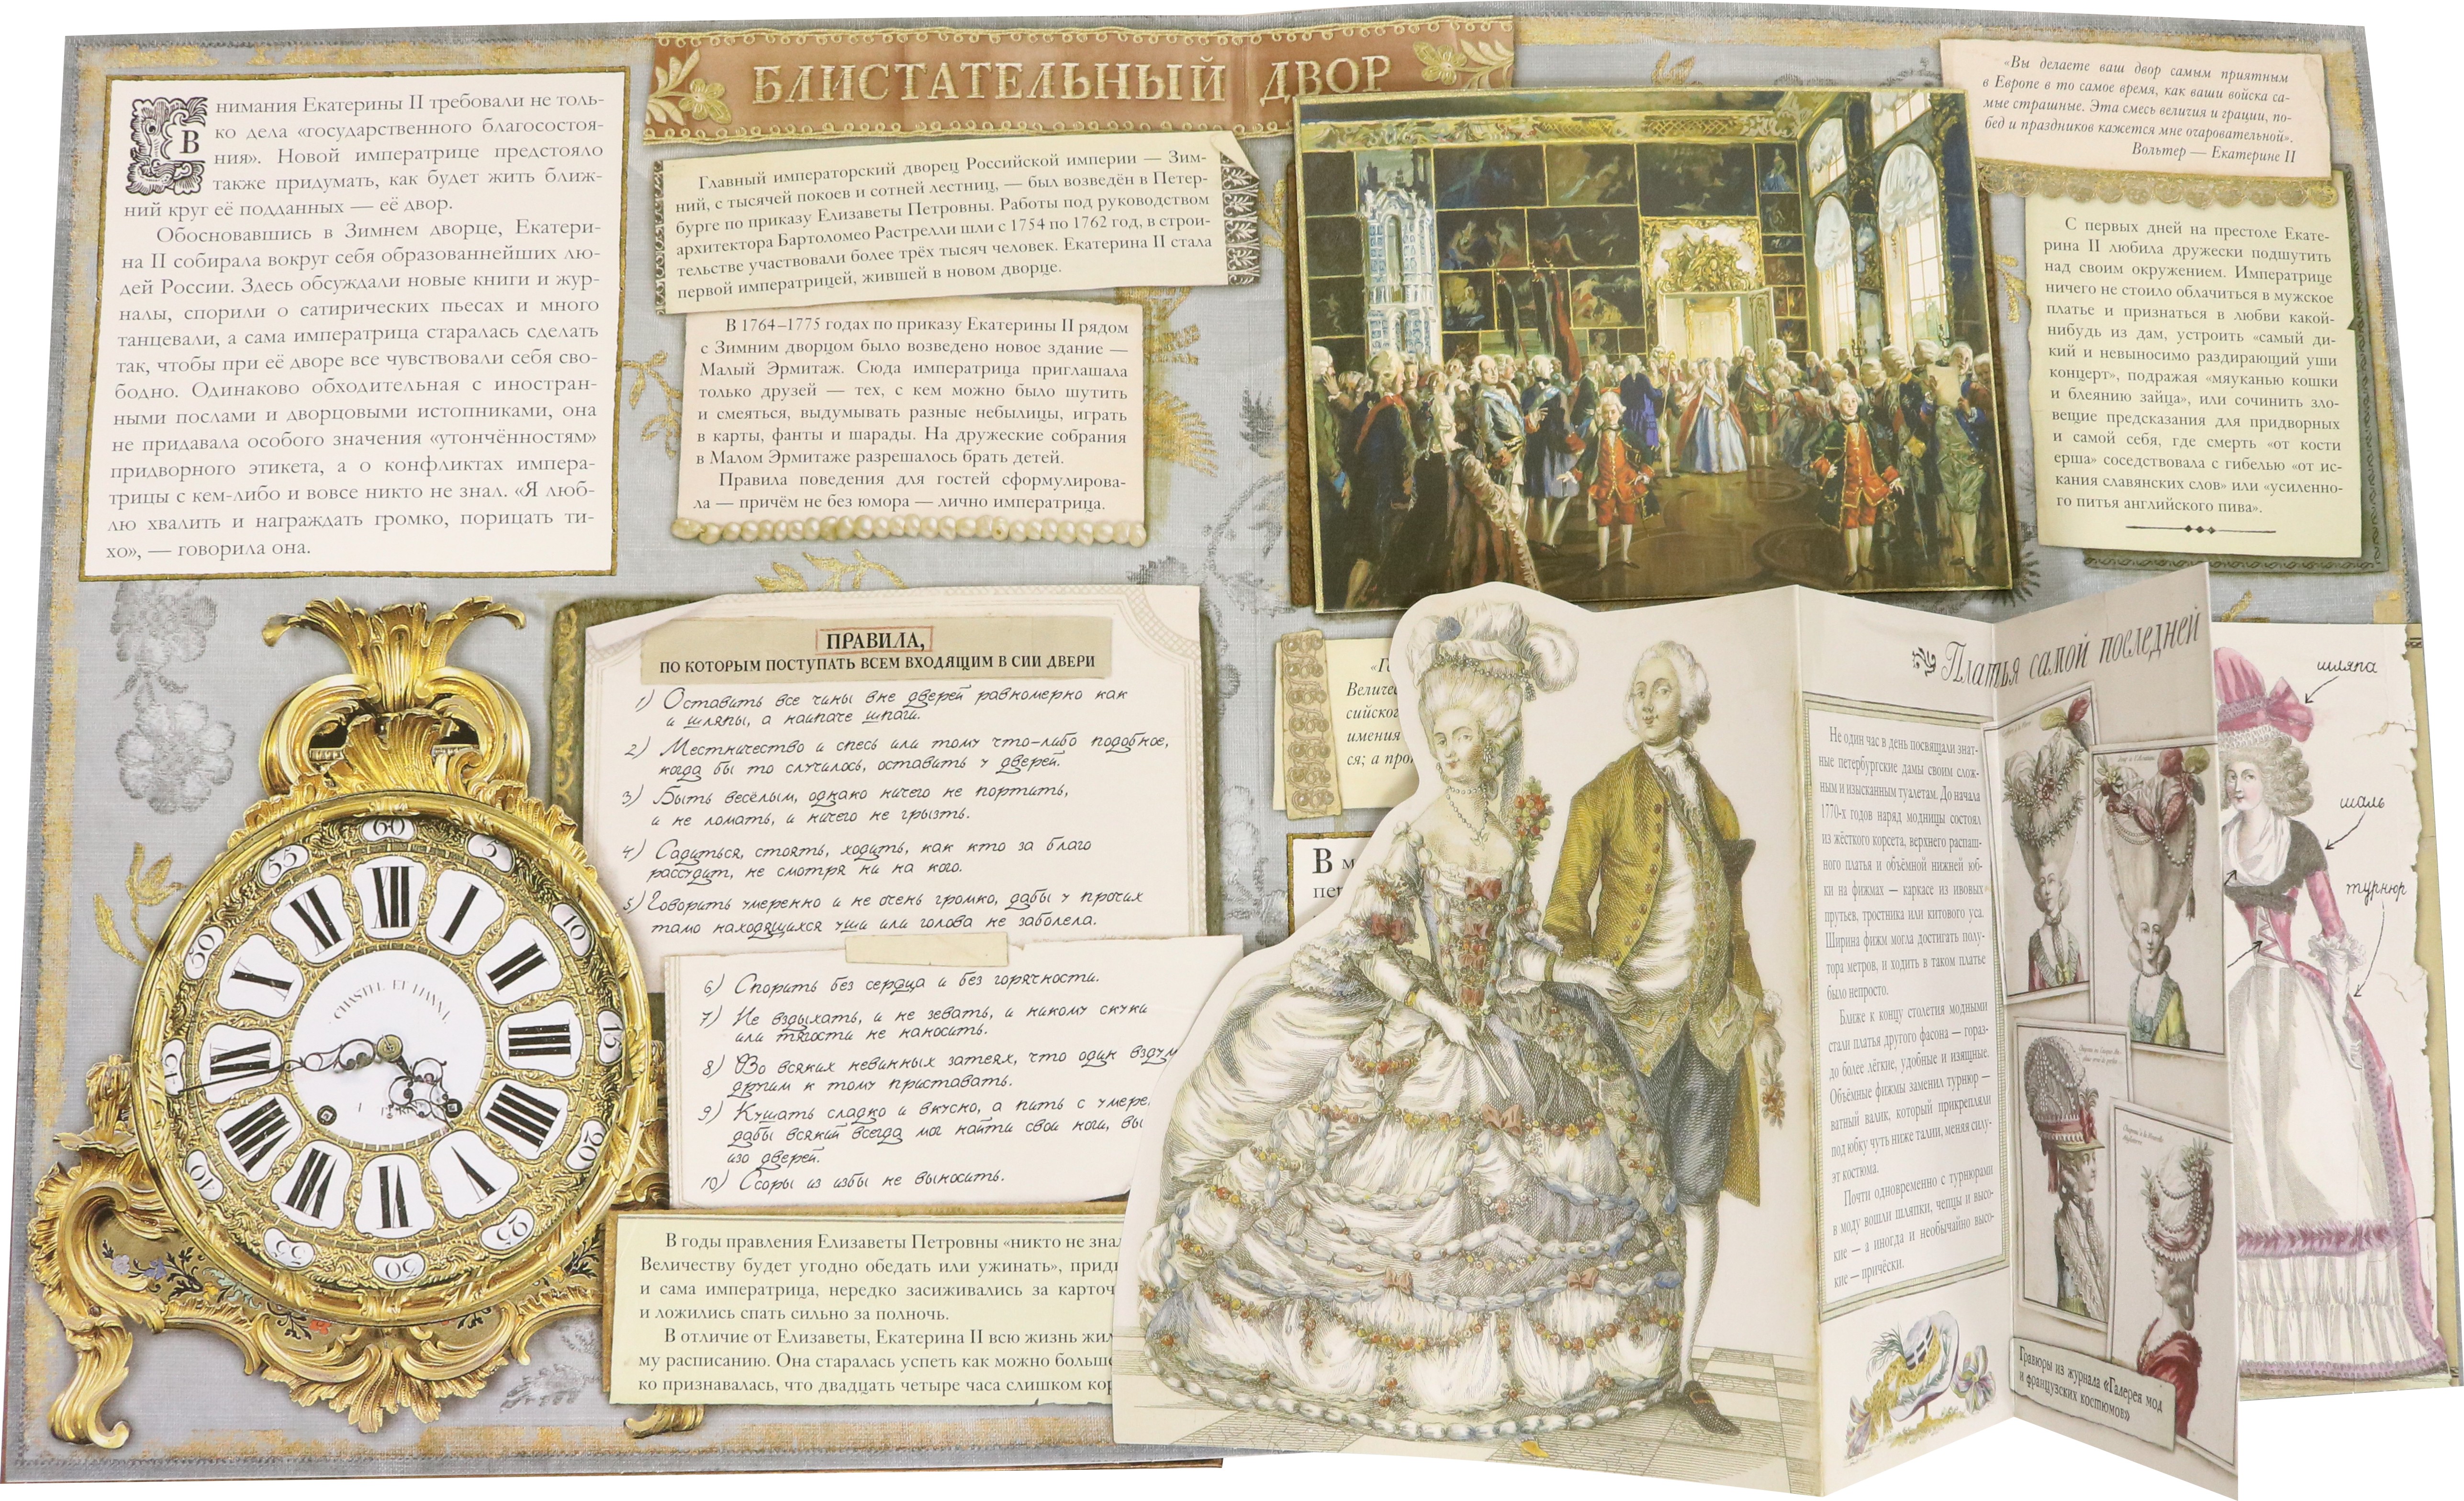 БЛИСТАТЕЛЬНЫЙ ДВОР
Внимания Екатерины II требовали не толь-
ко дела «государственного благосостоя-
ния». Новой императрице предстояло
также придумать, как будет жить ближ-
ний круг её подданных — её двор.
Обосновавшись в Зимнем дворце, Екатери-
на II собирала вокруг себя образованнейших лю-
дей России. Здесь обсуждали новые книги и жур-
налы, спорили о сатирических пьесах и много
танцевали, а сама императрица старалась сделать
так, чтобы при её дворе все чувствовали себя сво-
бодно. Одинаково обходительная с иностран-
ными послами и дворцовыми истопниками, она
не придавала особого значения «утончённостям»
придворного этикета, а о конфликтах импера-
трицы с кем-либо и вовсе никто не знал. «Я люб-
лю хвалить и награждать громко, порицать ти-
хо», — говорила она.
Главный императорский дворец Российской империи — Зим-
ний, с тысячей покоев и сотней лестниц, — был возведён в Петер-
бурге по приказу Елизаветы Петровны. Работы под руководством
архитектора Бартоломео Растрелли шли с 1754 по 1762 год, в строи-
тельстве участвовали более трёх тысяч человек. Екатерина II стала
первой императрицей, жившей в новом дворце.
В 1764–1775 годах по приказу Екатерины II рядом
с Зимним дворцом было возведено новое здание —
Малый Эрмитаж. Сюда императрица приглашала
только друзей — тех, с кем можно было шутить
и смеяться, выдумывать разные небылицы, играть
в карты, фанты и шарады. На дружеские собрания
в Малом Эрмитаже разрешалось брать детей.
Правила поведения для гостей сформулирова-
ла — причём не без юмора — лично императрица.
«Вы делаете ваш двор самым приятным
в Европе в то самое время, как ваши войска са-
мые страшные. Эта смесь величия и грации, по-
бед и праздников кажется мне очаровательной».
Вольтер — Екатерине II
С первых дней на престоле Екате-
рина II любила дружески подшутить
над своим окружением. Императрице
ничего не стоило облачиться в мужское
платье и признаться в любви какой-
нибудь из дам, устроить «самый ди-
кий и невыносимо раздирающий уши
концерт», подражая «мяуканью кошки
и блеянию зайца», или сочинить зло-
вещие предсказания для придворных
и самой себя, где смерть «от кости
ерша» соседствовала с гибелью «от ис-
кания славянских слов» или «усиленно-
го питья английского пива».
ПРАВИЛА,
ПО КОТОРЫМ ПОСТУПАТЬ ВСЕМ ВХОДЯЩИМ В СИИ ДВЕРИ
1) Оставить все чины вне дверей равномерно как
и шляпы, а наипаче шпаги.
2) Местничество и спесь или тому что-либо подобное,
когда бы то случилось, оставить у дверей.
3) Быть весёлым, однако ничего не портить,
и не ломать, и ничего не грызть.
4) Садиться, стоять, ходить, как кто за благо
рассудит, не смотря ни на кого.
5) Говорить умеренно и не очень громко, дабы у прочих
тамо находящихся уши или голова не заболела.
6) Спорить без сердца и без горячности.
7) Не вздыхать, и не зевать, и никому скуки
или тягости не наносить.
8) Во всяких невинных затеях, что один вздум
другим к тому приставать.
9) Кушать сладко и вкусно, а пить с умере
дабы всякий всегда мог найти свои ноги, вы
изо дверей.
10) Ссоры из избы не выносить.
В годы правления Елизаветы Петровны «никто не знал
Величеству будет угодно обедать или ужинать», придв
и сама императрица, нередко засиживались за карточ
и ложились спать сильно за полночь.
В отличие от Елизаветы, Екатерина II всю жизнь жил
му расписанию. Она старалась успеть как можно больше
ко признавалась, что двадцать четыре часа слишком кор
60 5 10 15 20 25 30 35 40 45 50 55
XII I II III IIII V VI VII VIII IX X XI
Величес
сийског
имения
ся; а про
В м
пе
Платья самой последней
Не один час в день посвящали знат-
ные петербургские дамы своим слож-
ным и изысканным туалетам. До начала
1770-х годов наряд модницы состоял
из жёсткого корсета, верхнего распаш-
ного платья и объёмной нижней юб-
ки на фижмах — каркасе из ивовых
прутьев, тростника или китового уса.
Ширина фижм могла достигать полу-
тора метров, и ходить в таком платье
было непросто.
Ближе к концу столетия модными
стали платья другого фасона — гораз-
до более лёгкие, удобные и изящные.
Объёмные фижмы заменил турнюр —
ватный валик, который прикрепляли
под юбку чуть ниже талии, меняя силу-
эт костюма.
Почти одновременно с турнюрами
в моду вошли шляпки, чепцы и высо-
кие — а иногда и необычайно высо-
кие — причёски.
Гравюры из журнала «Галерея мод
и французских костюмов»
шляпа
шаль
турнюр